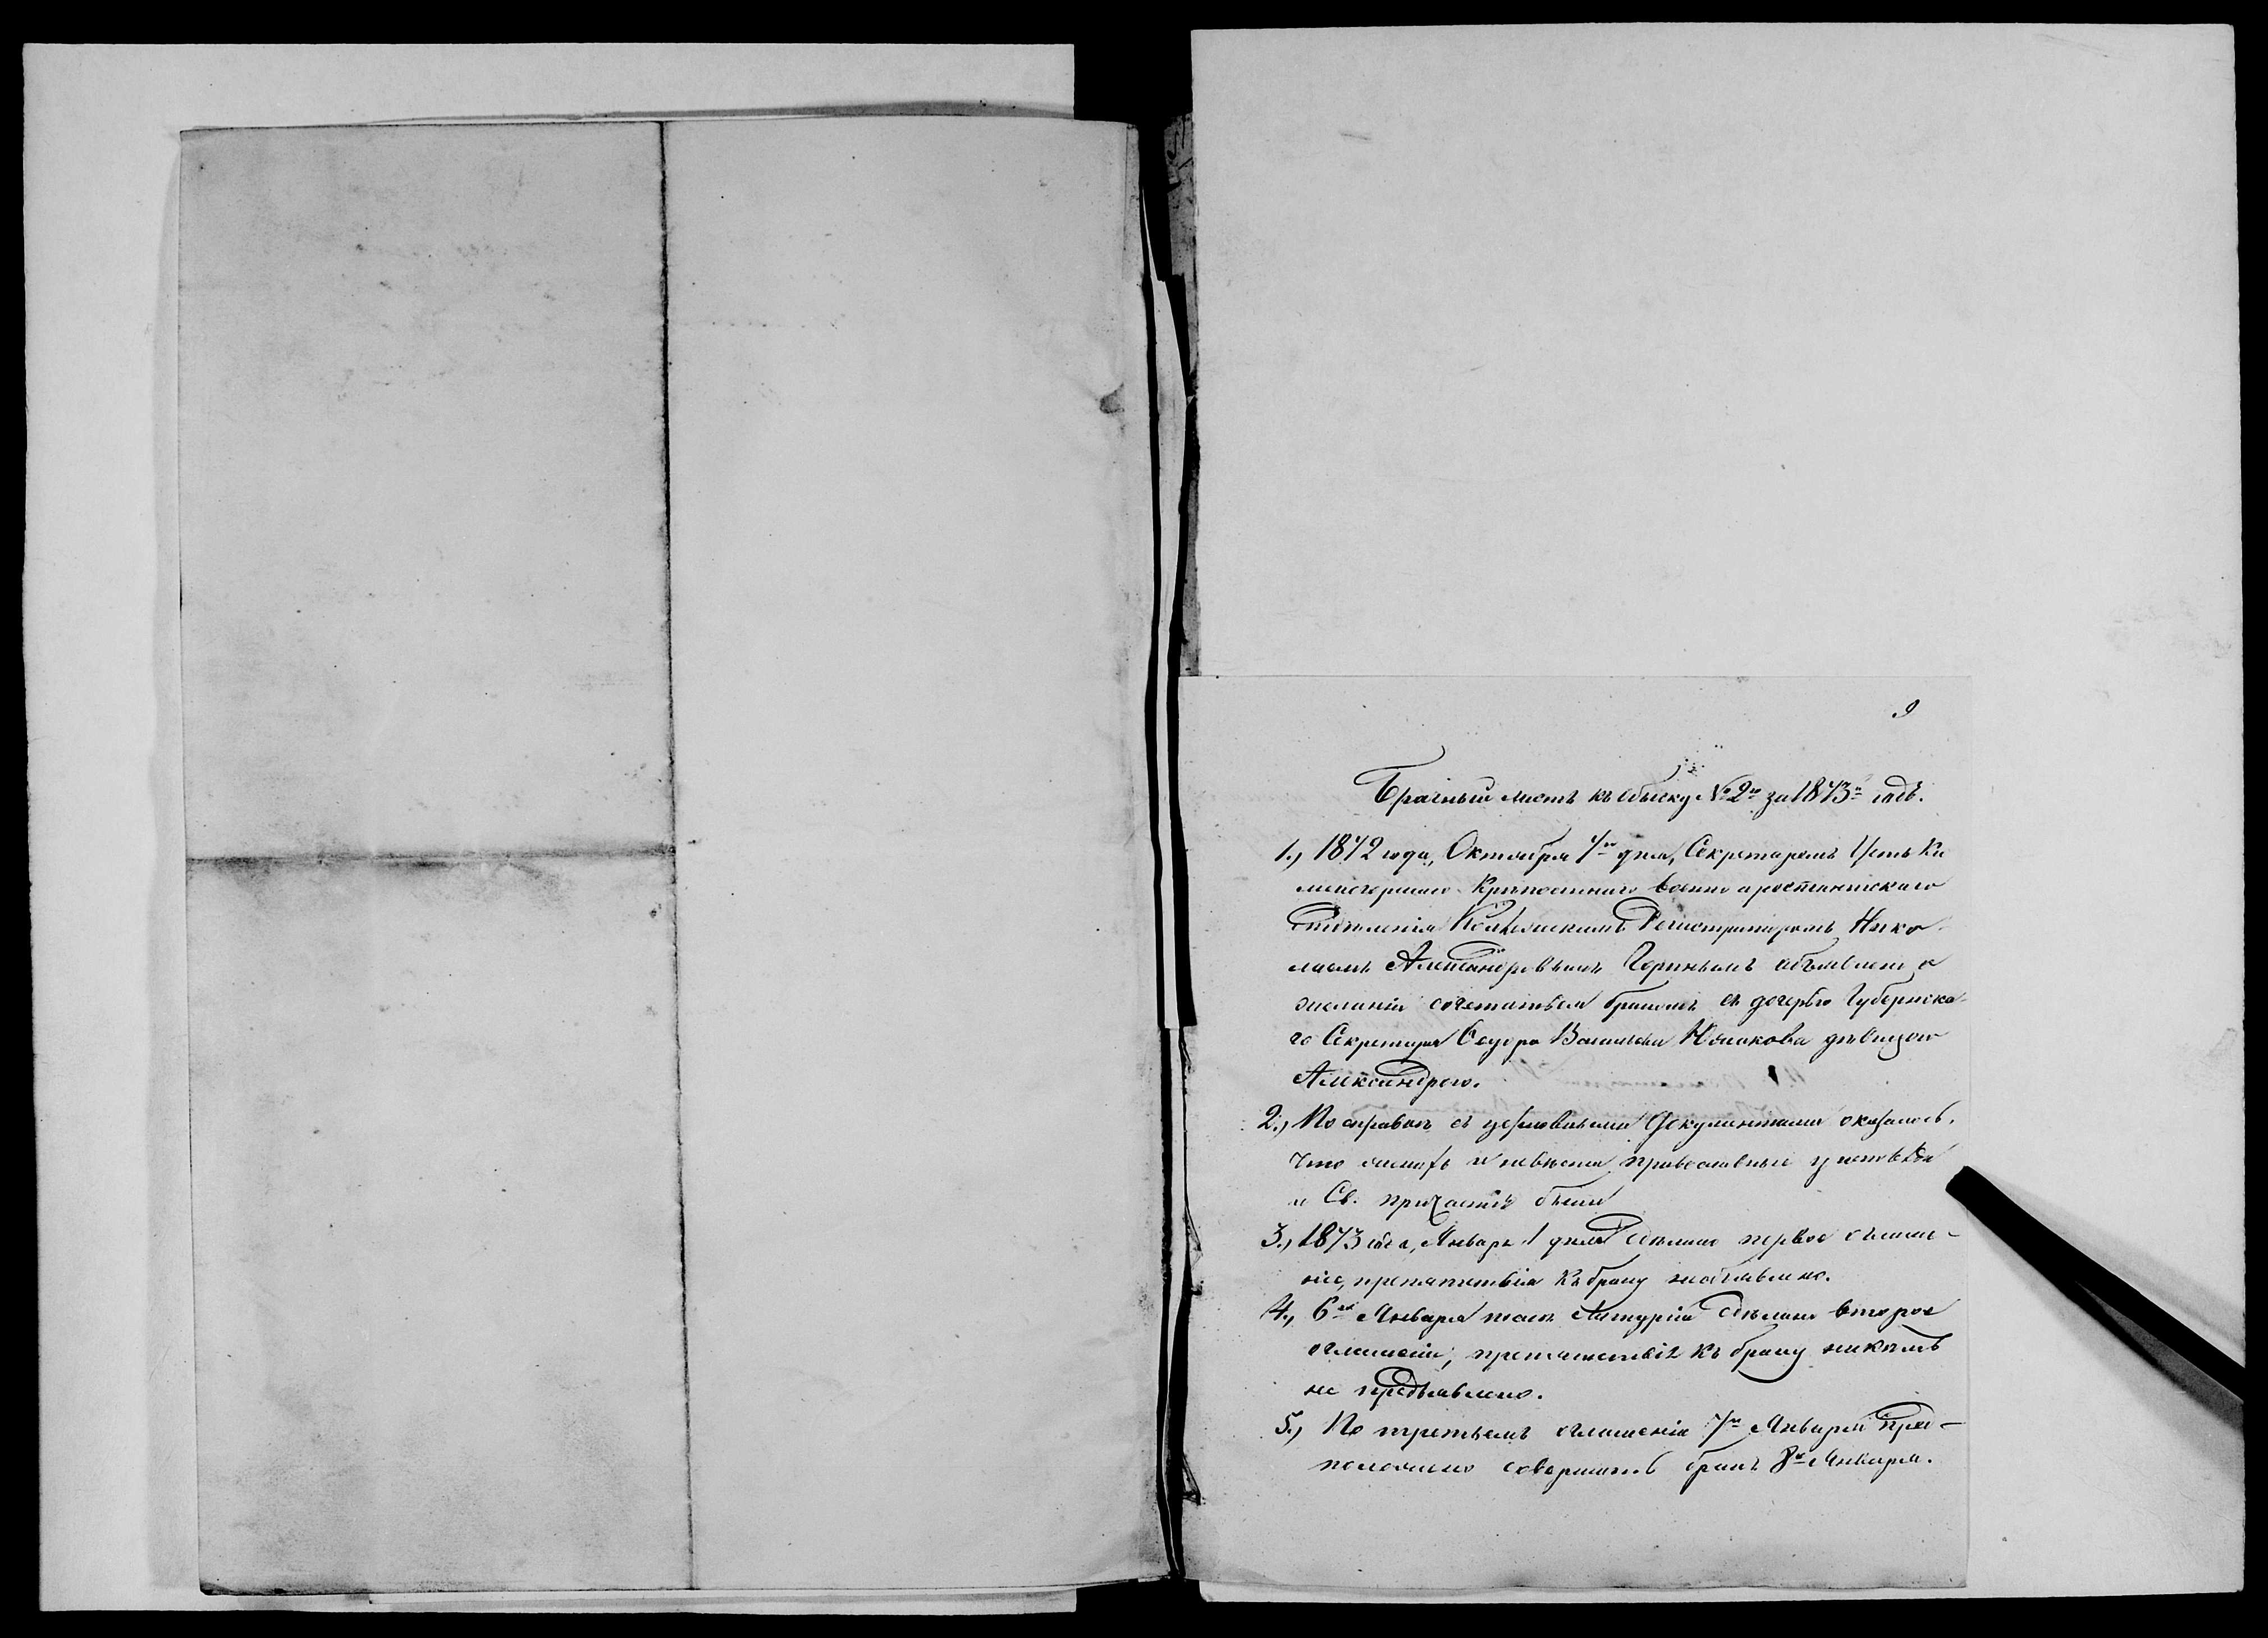 9
Брачный листъ къ обыску № 2й за 1873й годъ.
1.) 1872 года, Октября 1го дня, Секретаремъ Усть Ка
меногорскаго Крѣпостнаго военно арестантскаго
отдѣленія Коллежскимъ Регистраторомъ Нико-
лаемъ Александровымъ объявлено о
желаніи сочетаться бракомъ съ дочерью Губернска-
го Секретаря Ѳедора Васильева дѣвицею
Александрою.
2.) По справкѣ съ церковными документами оказалось,
что женихъ и невѣста православные у исповѣди
и Св. причастія были
3.) 1873 года, Января 1 дня сдѣлано первое оглаше-
ніе, препятствія къ браку необъявлено.
4.) 6го Января послѣ Литургіи сдѣлано второе
оглашеніе, препятствія къ браку никѣмъ
не предъявлено.
5.) По третьемъ оглашеніи 7го Января пред-
положено совершить бракъ 8го Января.